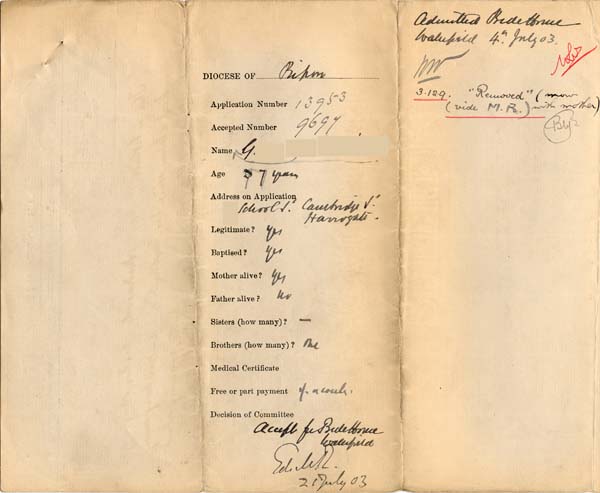 DIOCESE OF Ripon
Application Number 13953
Accepted Number 9697
Name G.
Age 7 years
Address on Application
School St. Cambridge St.
Harrogate.
Legitimate? Yes
Baptised? Yes
Mother alive? Yes
Father alive? No
Sisters (how many)? —
Brothers (how many)? One
Medical Certificate
Free or part payment
Decision of Committee
Accept for Bede Home
Wakefield
21 July 03
Admitted Bede Home
Wakefield 4th July 03.
3.12.9. "Removed" (now
(vide M.R.) with mother)